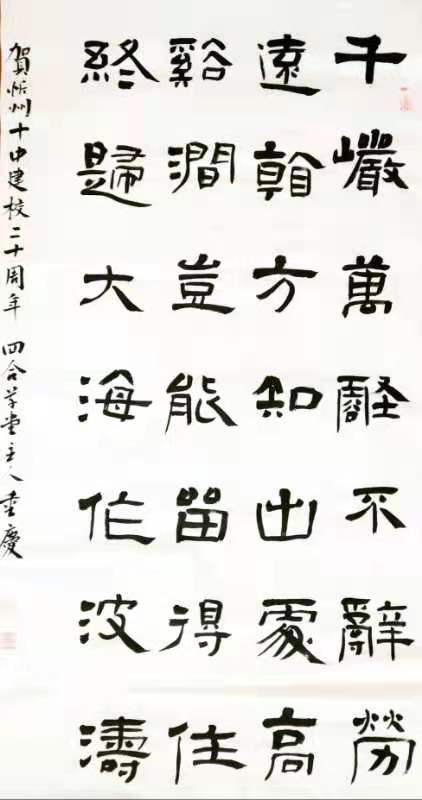 千巖萬壑不辭勞
遠看方知出處高
谿澗豈能留得住
終歸大海作波濤
賀忻州十中建校二十周年 四合草堂主人 慶